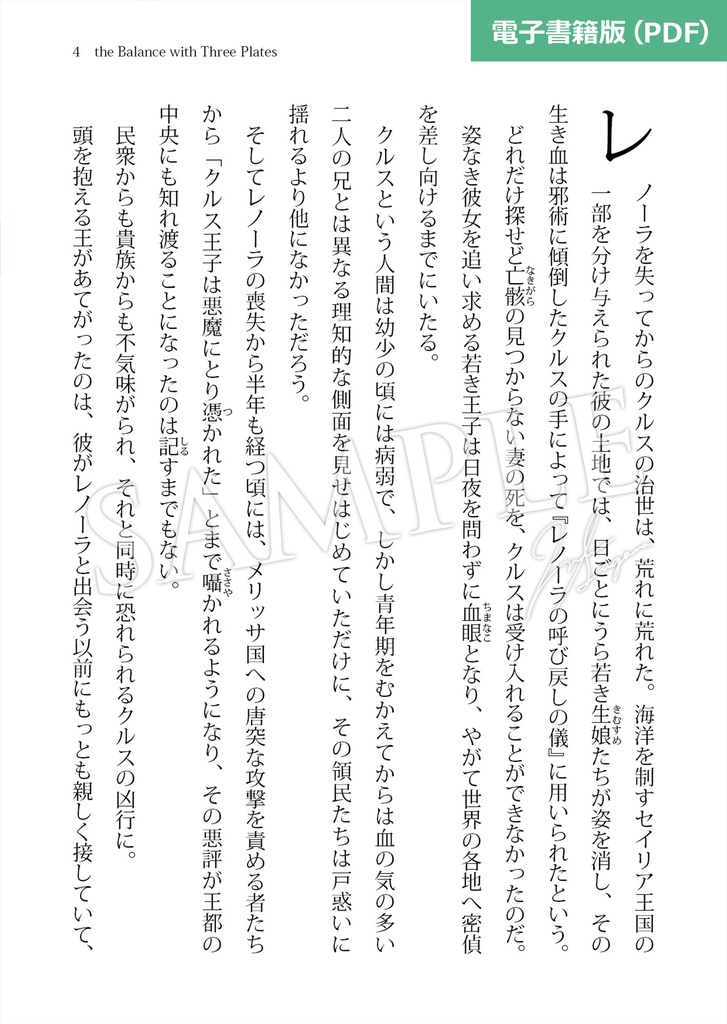 電子書籍版(PDF)
4 the Balance with Three Plates
レノーラを失ってからのクルスの治世は、荒れに荒れた。海洋を制するセイリア王国の
一部を分け与えられた彼の土地では、日ごとにうら若き生娘たちが姿を消し、その
生き血は邪術に傾倒したクルスの手によって『レノーラの呼び戻しの儀』に用いられたという。
どれだけ探せど亡骸の見つからない妻の死を、クルスは受け入れることができなかったのだ。
姿なき彼女を追い求める若き王子は日夜を問わずに血眼となり、やがて世界の各地へ密偵
を差し向けるまでにいたる。
クルスという人間は幼少の頃には病弱で、しかし青年期をむかえてからは血の気の多い
二人の兄とは異なる理知的な側面を見せはじめていただけに、その領民たちは戸惑いに
揺れるより他になかっただろう。
そしてレノーラの喪失から半年も経つ頃には、メリッサ国への唐突な攻撃を責める者たち
から「クルス王子は悪魔にとり憑かれた」とまで囁かれるようになり、その悪評が王都の
中央にも知れ渡ることになったのは記すまでもない。
民衆からも貴族からも不気味がられ、それと同時に恐れられるクルスの凶行に。
頭を抱える王があてがったのは、彼がレノーラと出会う以前にもっとも親しく接していて、
なきがら
きむすめ
ちまなこ
つ
ささや
しる
SAMPLE